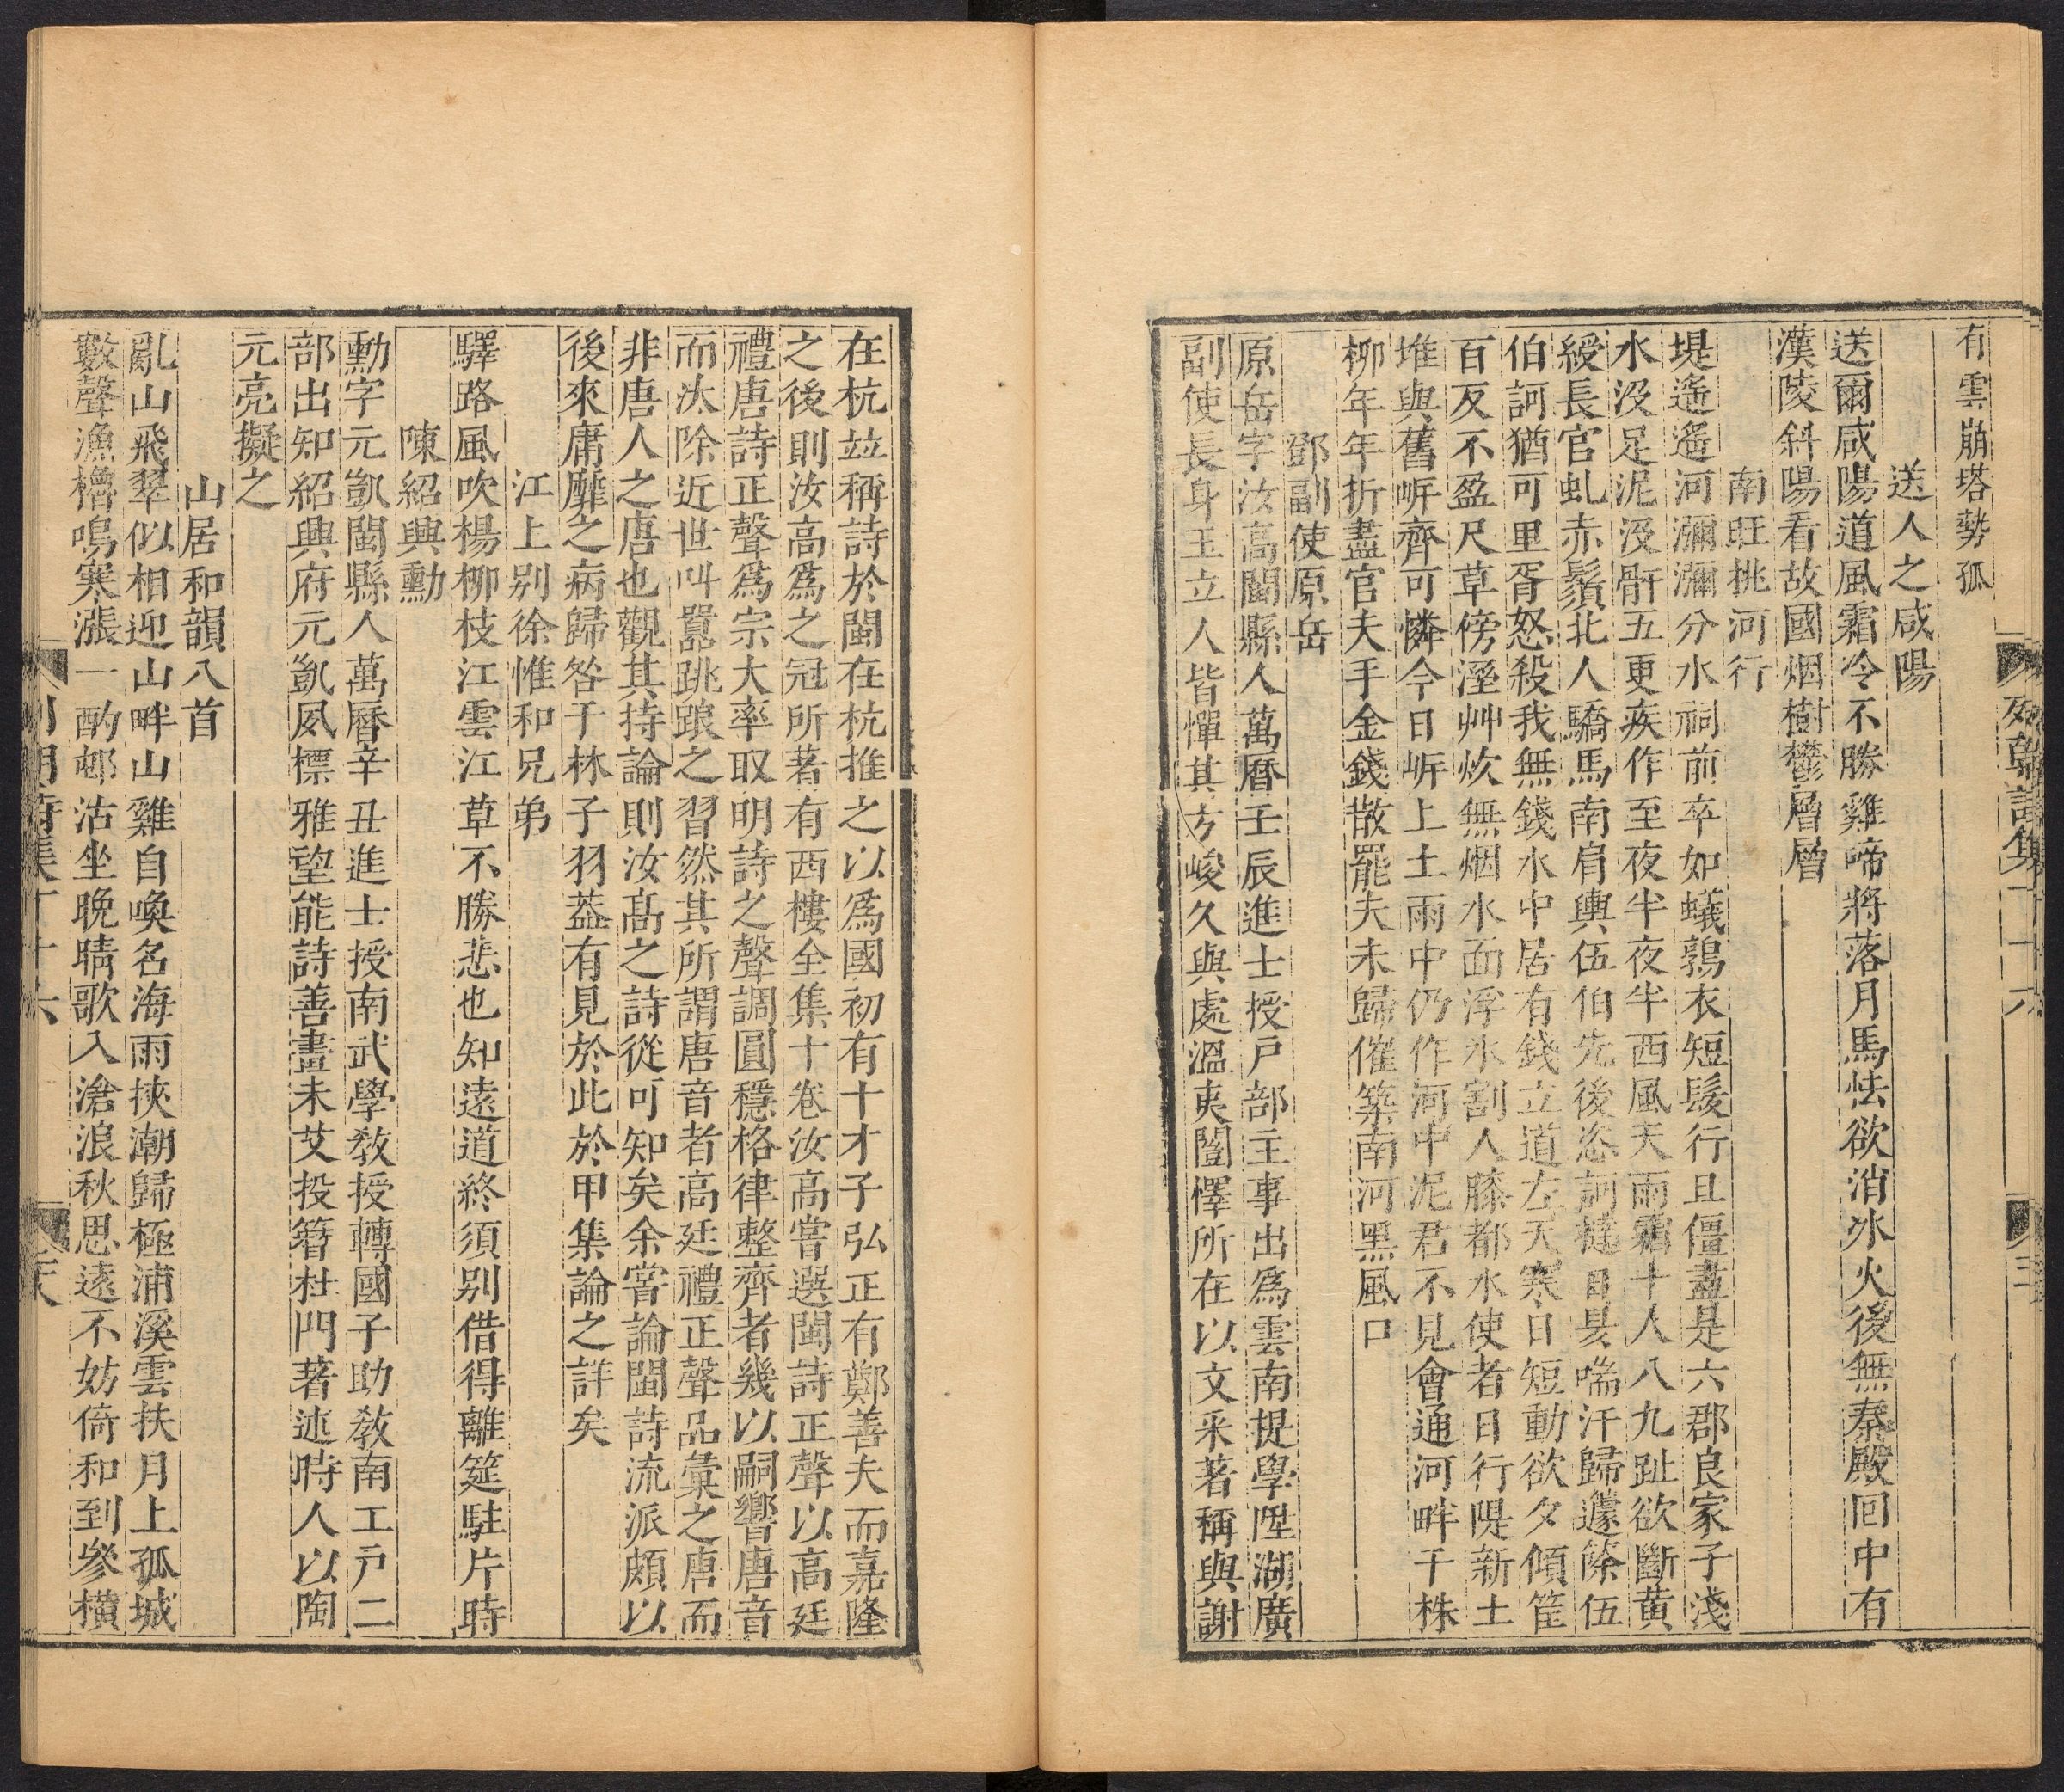 有雲崩塔勢孤
送人之咸陽
送爾咸陽道風霜冷不勝雞啼將落月馬怯欲消冰火後無秦殿回中有
漢陵斜陽看故國烟樹鬱層層
南旺挑河行
堤遙遙河瀰瀰分水祠前卒如蟻鶉衣短髮行且僵盡是六郡良家子淺
水沒足泥沒骭五更疾作至夜半夜半西風天雨霜十人八九趾欲斷黃
綬長官虬赤鬚北人驕馬南肩輿伍伯先後恣訶撻日昃喘汗歸籧篨伍
伯訶猶可里胥怒殺我無錢水中居有錢立道左天寒日短動欲夕傾筐
百反不盈尺草傍溼艸炊無烟水面浮氷割人膝都水使者日行隄新土
堆與舊㟁齊可憐今日㟁上土雨中仍作河中泥君不見會通河畔千株
柳年年折盡官夫手金錢散罷夫未歸催築南河黑風口
鄧副使原岳
原岳字汝高閩縣人萬曆壬辰進士授戸部主事出爲雲南提學陞湖廣
副使長身玉立人皆憚其方峻久與處溫夷闓懌所在以文采著稱與謝
列朝詩集丁十六
三
在杭竝稱詩於閩在杭推之以爲國初有十才子弘正有鄭善夫而嘉隆
之後則汝高爲之冠所著有西樓全集十卷汝高嘗選閩詩正聲以高廷
禮唐詩正聲爲宗大率取明詩之聲調圓穩格律整齊者幾以嗣響唐音
而汰除近世叫囂跳踉之習然其所謂唐音者高廷禮正聲品彙之唐而
非唐人之唐也觀其持論則汝高之詩從可知矣余嘗論閩詩流派頗以
後來庸靡之病歸咎于林子羽蓋有見於此於甲集論之詳矣
江上別徐惟和兄弟
驛路風吹楊柳枝江雲江草不勝悲也知遠道終須別借得離筵駐片時
陳紹興勳
勳字元凱閩縣人萬曆辛丑進士授南武學教授轉國子助教南工戸二
部出知紹興府元凱夙標雅望能詩善畫未艾投簪杜門著述時人以陶
元亮擬之
山居和韻八首
亂山飛翠似相迎山畔山雞自喚名海雨挾潮歸極浦溪雲扶月上孤城
數聲漁櫓鳴寒漲一酌邨沽坐晚晴歌入滄浪秋思遠不妨倚和到參橫
列朝詩集丁十六